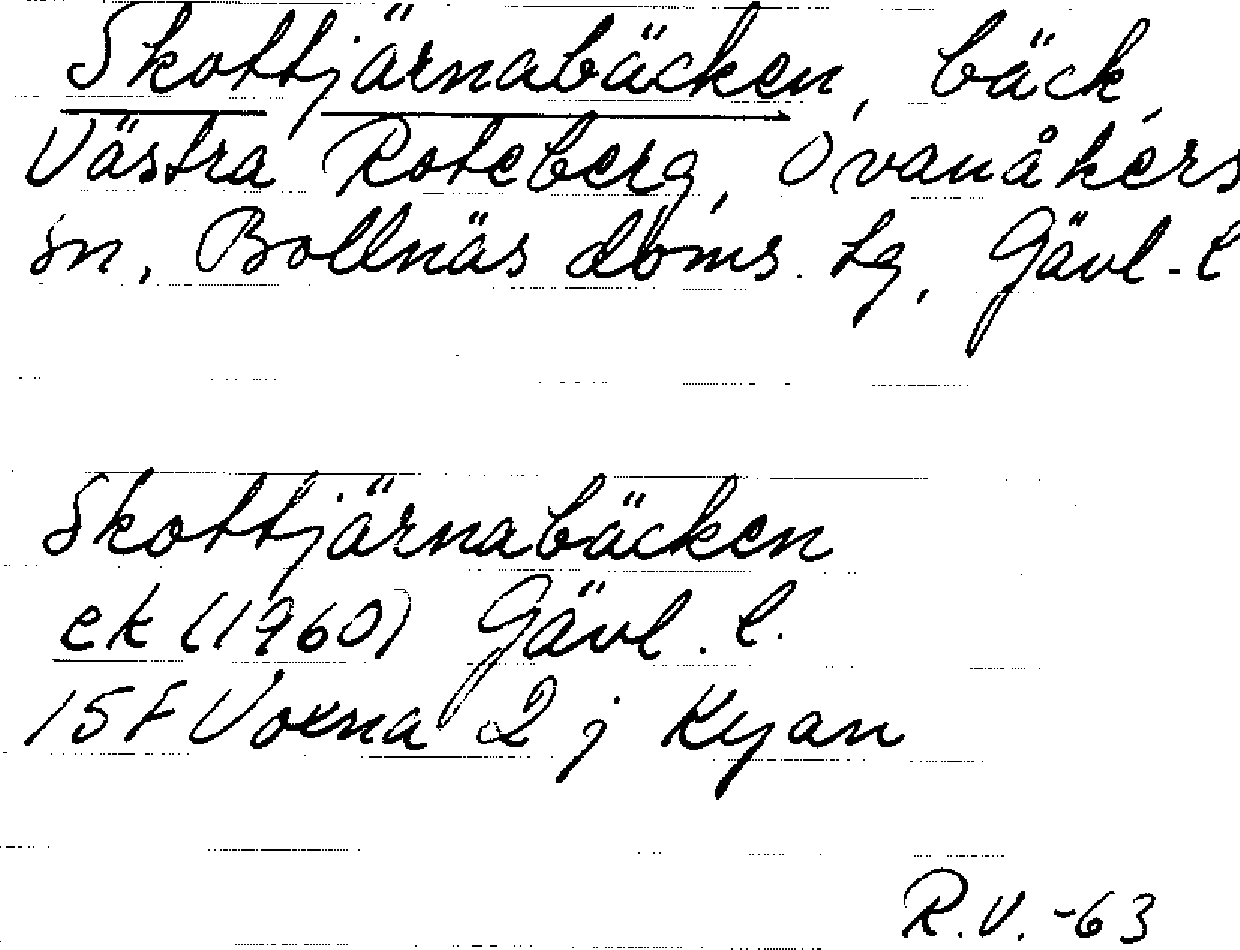 Skottjärnabäcken, bäck,
Västra Roteberg, Ovanåkers
sn, Bollnäs doms. tg, Gävl. l
Skottjärnabäcken
ek (1960) Gävl. l.
15F Voxna 2 j Kyan
R.V. -63